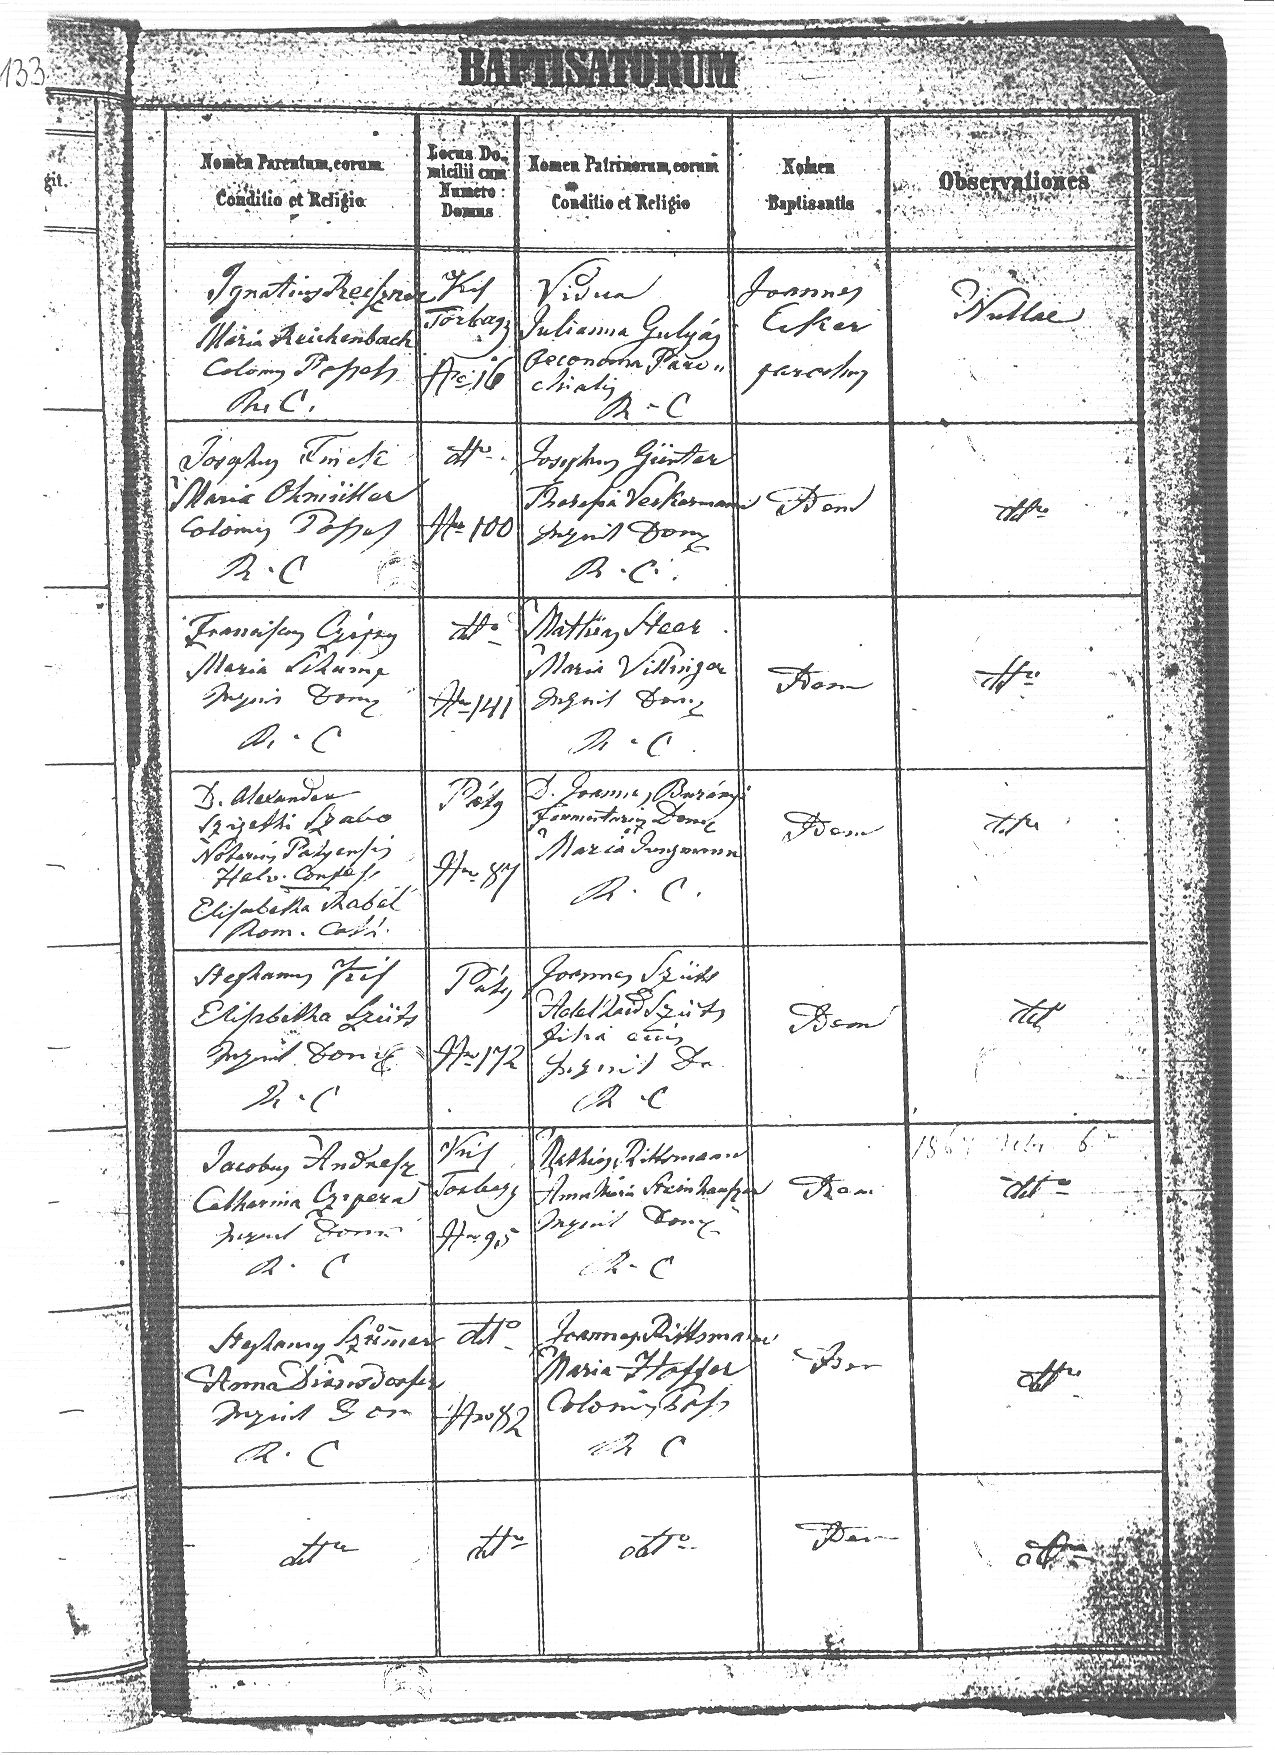 133
BAPTISATORUM
git.
Nomen Parentum, eorum
Conditio et Religio
Locus Do-
micilii cum
Numero
Domus
Nomen Patrinorum, eorum
Conditio et Religio
Nomen
Baptisantis
Observationes
Ignatius
Maria Reichenbach
Colonus
R. C.
Kis
Torbágy
Nro 16
Vidua
Julianna Gulyás
Oeconoma Paro„
chialis
R - C
Joannes
Ecker
parochus
Nullae
Josephus Finck
Maria
Colonus
R. C
dtto
Nro 100
Josephus Günter
Theresia
Inquil Dom
R. C.
Idem
dtto
Franciscus
Maria
Inquil Dom
R. C
dtto
Nro 141
Mathias Steer
Maria Villinger
Inquil Dom
R. C.
Idem
dtto
D. Alexander
Szigethi Szabo
Notarius Patyensis
Helv. Confess
Elisabetha Rabél
Rom. Cath.
Páty
Nro 87
D. Joannes Burányi
Maria Jungmann
R. C.
Idem
dtto
Stephanus Kis
Elisabetha Szüts
Inquil Dom
R. C
Páty
Nro 172
Joannes Szüts
Adelhaid Szüts
filia
Inquil Do
R. C
Idem
dtt
Jacobus
Catharina Czipera
Inquil Dom
R. C
Kis
Torbágy
Nro 95
Mathias Rittsmann
Anna Maria
Inquil Dom
R. C
Idem
dtto
Stephanus
Anna
Inquil Dom
R. C
dtto
Nro 82
Joannes Rittsmann
Maria Hoffer
Colonus
R C
Idem
dtto
dtto
dtto
dtto
Idem
dtto